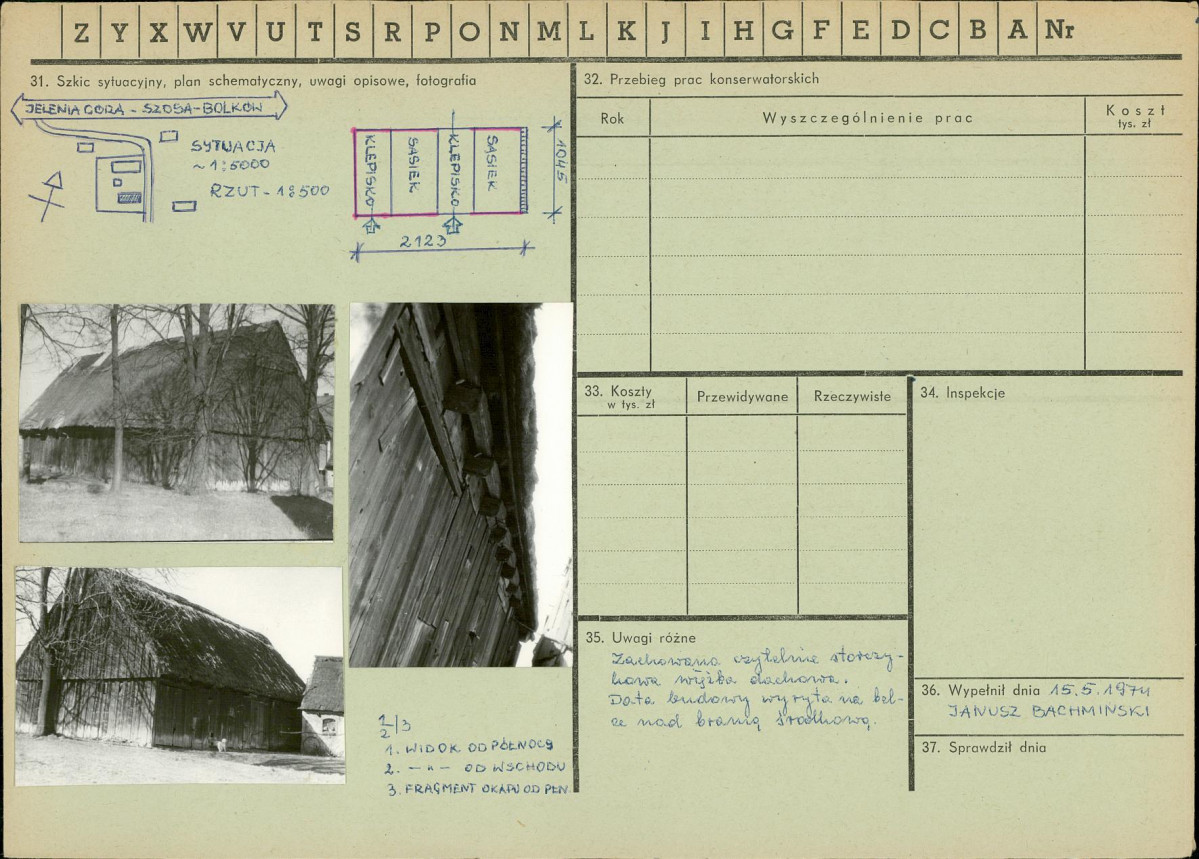 Z Y X W V U T S R P O N M L K J I H G F E D C B A Nr
31. Szkic sytuacyjny, plan schematyczny, uwagi opisowe, fotografia
JELENIA GÓRA - SZOSA - BOLKÓW
SYTUACJA
~ 1:5000
RZUT - 1:500
KLEPISKO
SĄSIEK
KLEPISKO
SĄSIEK
1045
2123
1/2/3
1. WIDOK OD PÓŁNOCY
2. — „ — OD WSCHODU
3. FRAGMENT OKAPU OD PŁN.
32. Przebieg prac konserwatorskich
Rok
Wyszczególnienie prac
Koszt
tys. zł
33. Koszty
w tys. zł
Przewidywane
Rzeczywiste
34. Inspekcje
35. Uwagi różne
Zachowana czytelnie storczy-
kowa więźba dachowa.
Data budowy wyryta na bel-
ce nad bramą środkową.
36. Wypełnił dnia 15.5.1974
JANUSZ BACHMIŃSKI
37. Sprawdził dnia